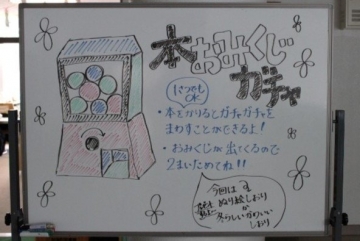 本おみくじ
ガチャ
1人1つでも
OK
・本をかりるとガチャガチャを
まわすことができるよ！
・おみくじが出てくるので
2まいためてね!!
今回は
ぬり絵しおり
か
冬らしいかわいい
しおり